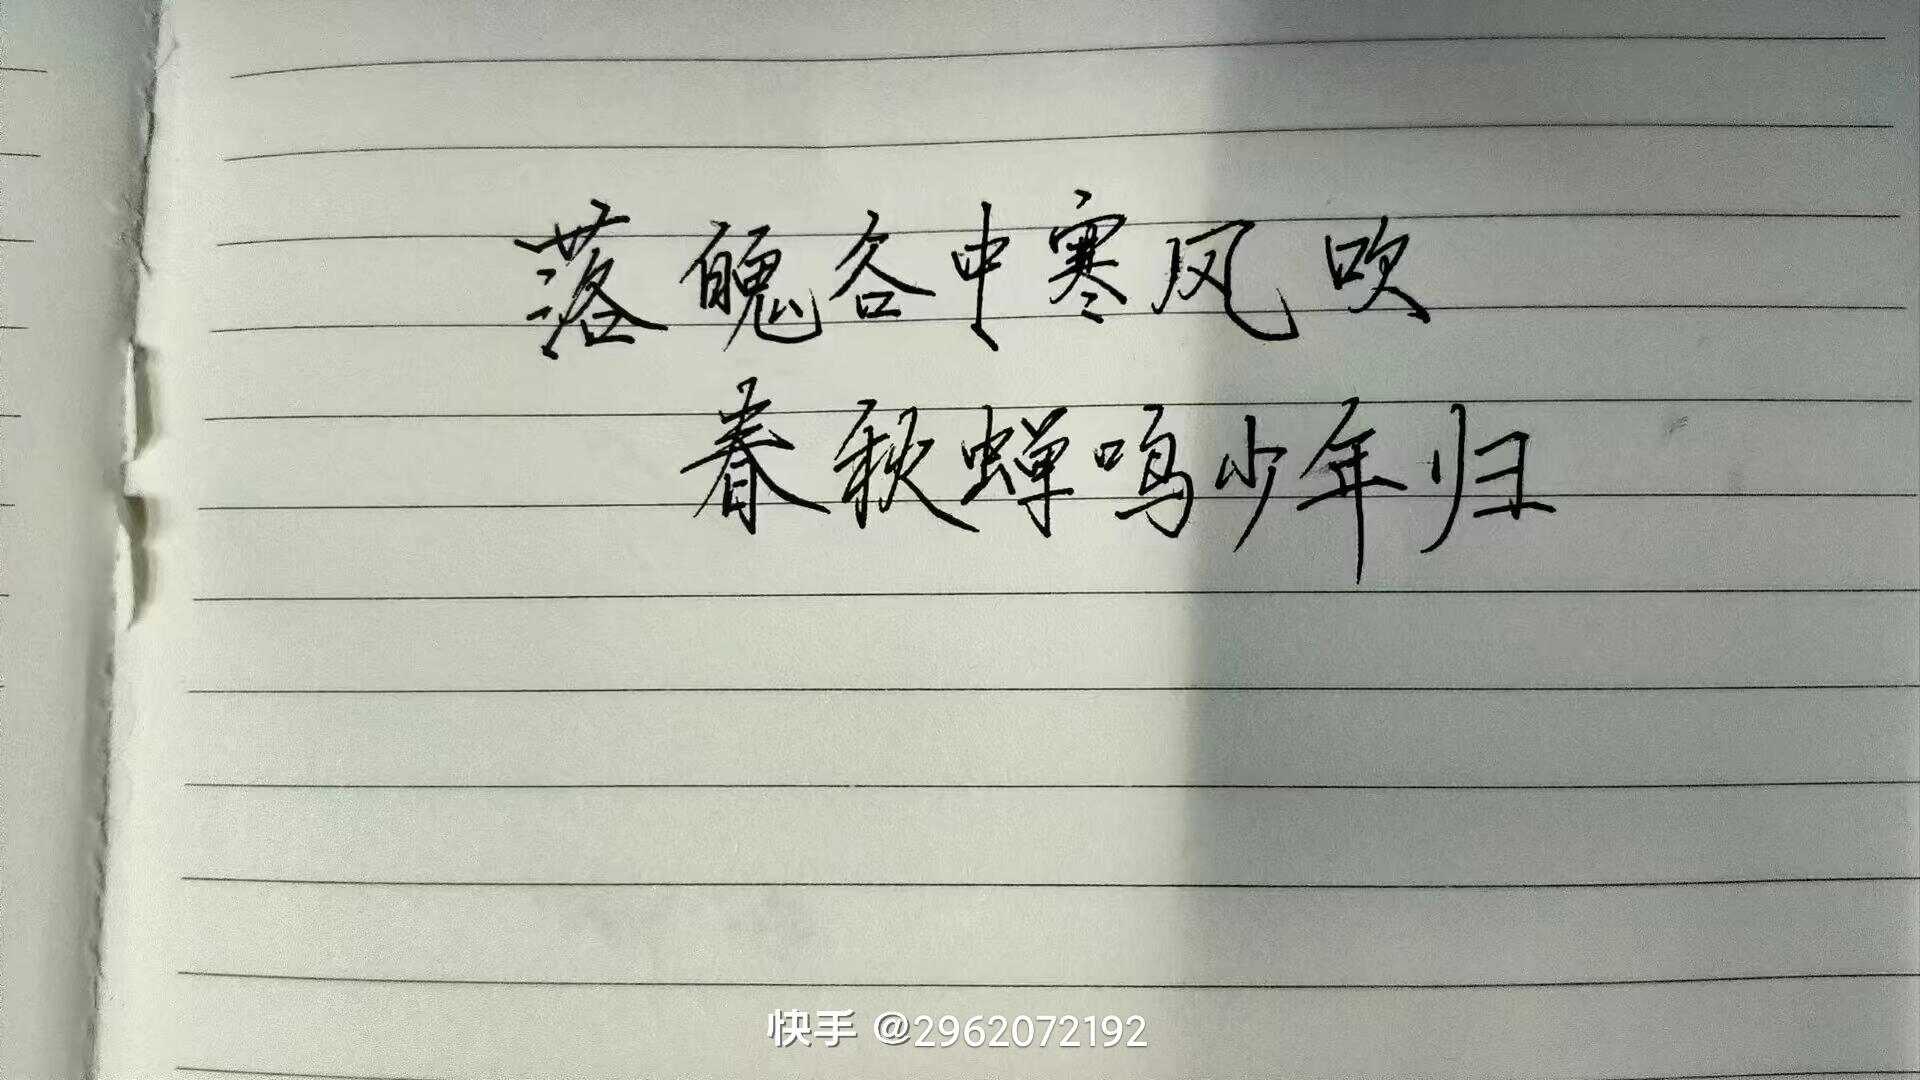 落魄各中寒风吹
春秋蝉鸣少年归
快手 @2962072192